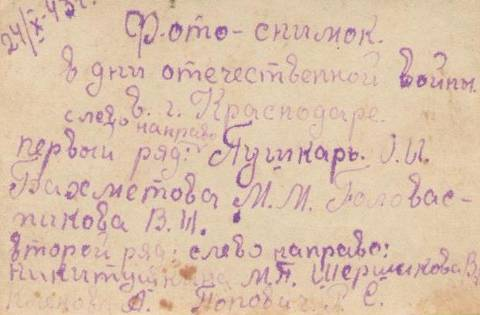 24/X-43 г.
Фото-снимок.
в дни отечественной войны.
в. г. Краснодаре.
слево направо
первый ряд: Пушкарь. О.И.
Бахметова М.М. Головас-
никова В.И.
второй ряд: слево направо:
Никитушкина М.П. Шершикова В.
А. Попович. Р. С.